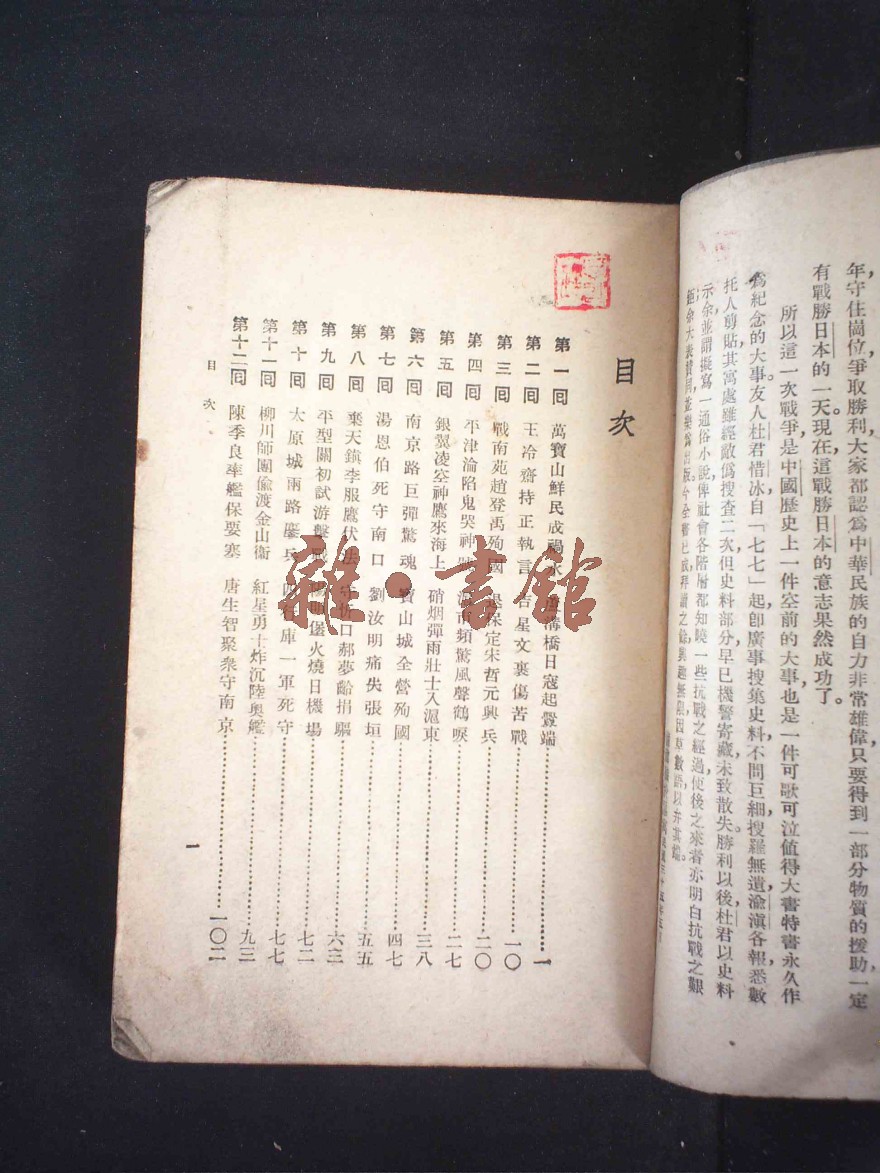 年守住崗位爭取勝利大家都認爲中華民族的自力非常雄偉只要得到一部分物質的援助一定
有戰勝日本的一天。現在這戰勝日本的意志果然成功了。
所以這一次戰爭是中國歷史上一件空前的大事也是一件可歌可泣值得大書特書永久作
爲紀念的大事。友人杜君惜冰自「七七」起卽廣事搜集史料不間巨細搜羅無遺渝滇各報悉數
托人剪貼其寓處雖經敵僞搜查二次但史料部分早已機警寄藏未致散失。勝利以後杜君以史料
示余並謂擬寫一通俗小說俾社會各階層都知曉一些抗戰之經過使後之來者亦明白抗戰之艱
目次
第一回 萬寶山鮮民成禍水 溝橋日寇起釁端 一
第二回 王冷齋持正執言 吉星文裹傷苦戰 一〇
第三回 戰南苑趙登禹殉國 退保定宋哲元興兵 二〇
第四回 平津淪陷鬼哭神 頻驚風聲鶴唳 二七
第五回 銀翼凌空神鷹來海上 硝烟彈雨壯士入滬東 三八
第六回 南京路巨彈驚魂 寶山城全營殉國 四七
第七回 湯恩伯死守南口 劉汝明痛失張垣 五五
第八回 棄天鎮李服膺伏法 守忻口郝夢齡捐軀 六三
第九回 平型關初試游擊戰 陽明堡火燒日機場 七二
第十回 太原城兩路鏖兵 四行庫一軍死守 七七
第十一回 柳川師團偸渡金山衞 紅星勇士炸沉陸奥艦 九三
第十二回 陳季良率艦保要塞 唐生智聚衆守南京 一〇二
目次
一
雜·書館